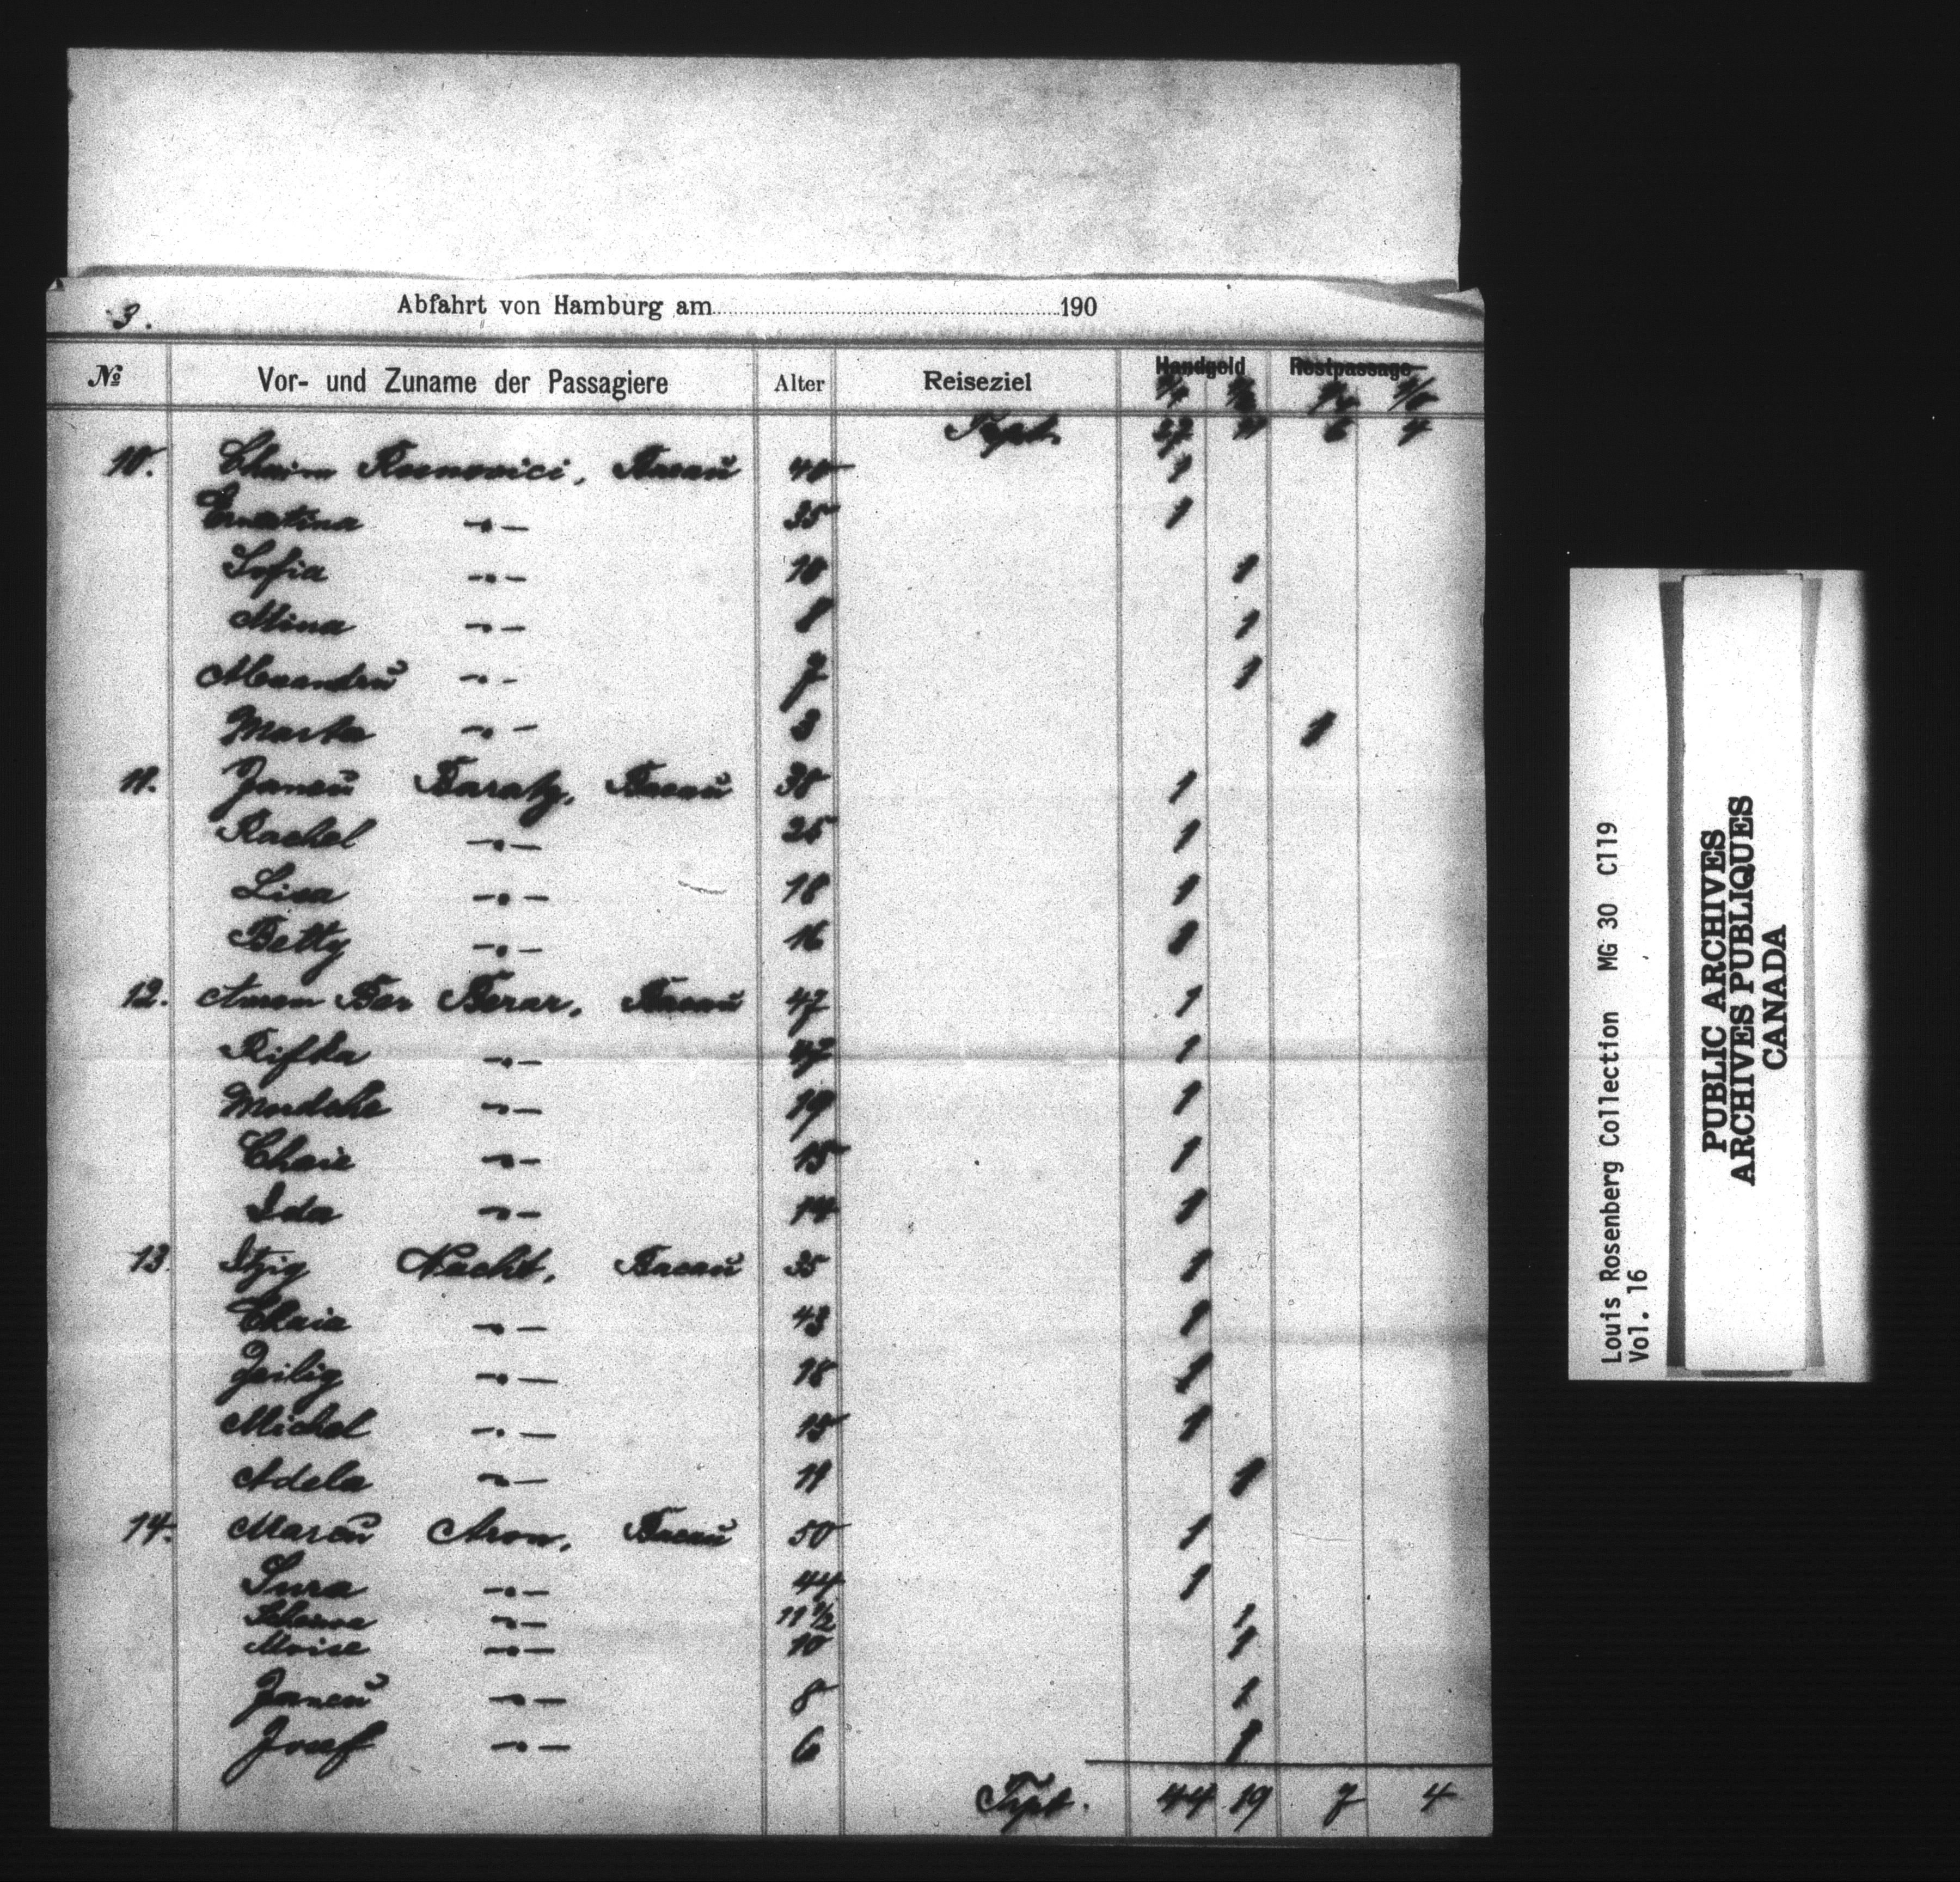 3.
Abfahrt von Hamburg am 190
№ Vor- und Zuname der Passagiere Alter Reiseziel Handgeld Restpassage
Trpt. 27 11 6 4
10. Chaim Rosnovici, Bacaŭ 40 1
Ernestina -"- 35 1
Sofia -"- 10 1
Mina -"- 8 1
Alexandrŭ -"- 7 1
Marta -"- 3 1
11. Jancŭ Baratz, Bacaŭ 38 1
Rachel -"- 1
Lisa -"- 18 1
Betty -"- 16 1
12. Ber Berar, Bacaŭ 47 1
Rifka -"- 47 1
Mordche -"- 19 1
Chaie -"- 15 1
Ida -"- 14 1
13. Itzig Nacht, Bacaŭ 35 1
Chaia -"- 43 1
Zeilig -"- 18 1
Michel -"- 15 1
Adela -"- 11 1
14. Marcŭ Aron, Bacaŭ 50 1
Sura -"- 44 1
-"- 11 1/2 1
Moise -"- 10 1
Jancŭ -"- 8 1
Josef -"- 6 1
Trpt. 44 19 7 4
Louis Rosenberg Collection MG 30 C119
Vol. 16
PUBLIC ARCHIVES
ARCHIVES PUBLIQUES
CANADA